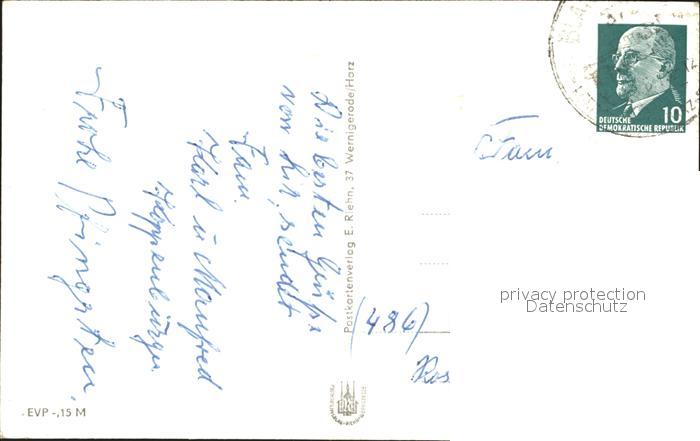 Frohe Pfingsten,
Die besten Grüße
von hir sendet
Fam.
Karl u Manfred
Postkartenverlag E. Riehn, 37 Wernigerode/Harz
EVP -,15 M
BLA
10
DEUTSCHE
DEMOKRATISCHE REPUBLIK
Fam.
(486)
Ros
privacy protection
Datenschutz